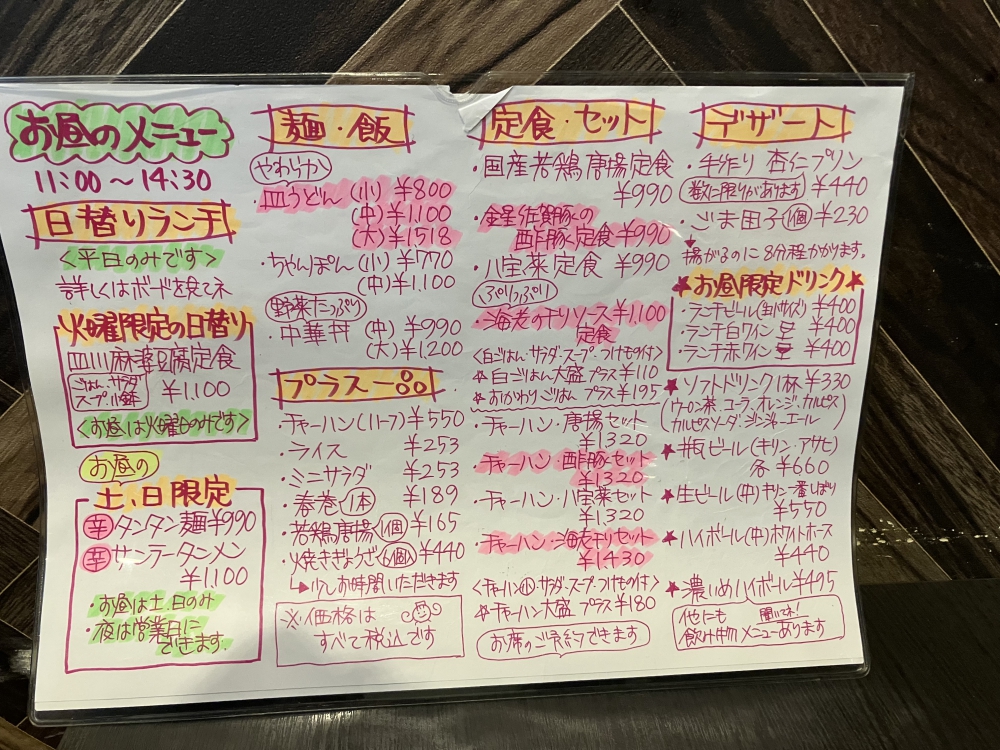 お昼のメニュー
11:00～14:30
日替りランチ
<平日のみです>
詳しくはボードを見てネ
火曜限定の日替り
四川麻婆豆腐定食
ごはん・サラダ
スープ・小鉢
¥1.100
<お昼は火曜日のみです>
お昼の
土、日限定
辛タンタン麺¥990
辛サンラータンメン
¥1.100
・お昼は土、日のみ
・夜は営業日に
できます。
麺・飯
やわらか
・皿うどん(小)¥800
(中)¥1.100
(大)¥1.518
・ちゃんぽん(小)¥770
(中)¥1.100
野菜たっぷり
・中華丼(中)¥990
(大)¥1,200
プラス一品
・チャーハン(ハーフ)¥550
・ライス ¥253
・ミニサラダ ¥253
・春巻1本 ¥189
・若鶏唐揚1個¥165
・焼きぎょうざ6個¥440
↳少しお時間いただきます
※価格は
すべて税込です
定食・セット
・国産若鶏唐揚定食
¥990
・金星佐賀豚の
酢豚定食¥990
・八宝菜定食 ¥990
ぷりっぷり
・海老のチリソース¥1.100
定食
<白ごはん・サラダ・スープ・つけもの付>
☆白ごはん大盛プラス¥110
☆おかわりごはんプラス¥195
・チャーハン・唐揚セット
¥1.320
・チャーハン・酢豚セット
¥1.320
・チャーハン・八宝菜セット
¥1.320
・チャーハン・海老チリセット
¥1.430
<チャーハン・サラダ・スープ・つけもの付>
☆チャーハン大盛プラス¥180
お席のご予約できます
デザート
・手作り杏仁プリン
数に限りがあります ¥440
・ごま団子1個¥230
揚がるのに8分程かかります。
★お昼限定ドリンク★
・ランチビール ¥400
・ランチ白ワイン ¥400
・ランチ赤ワイン ¥400
★ソフトドリンク1杯¥330
(ウーロン茶、コーラ、オレンジ、カルピス
カルピスソーダ・ジンジャーエール)
★瓶ビール(キリン・アサヒ)
各¥660
★生ビール(中)キリン一番しぼり
¥550
★ハイボール(中)ホワイトホース
¥440
★濃いめハイボール¥495
他にも 聞いてネ!
飲み物メニューあります